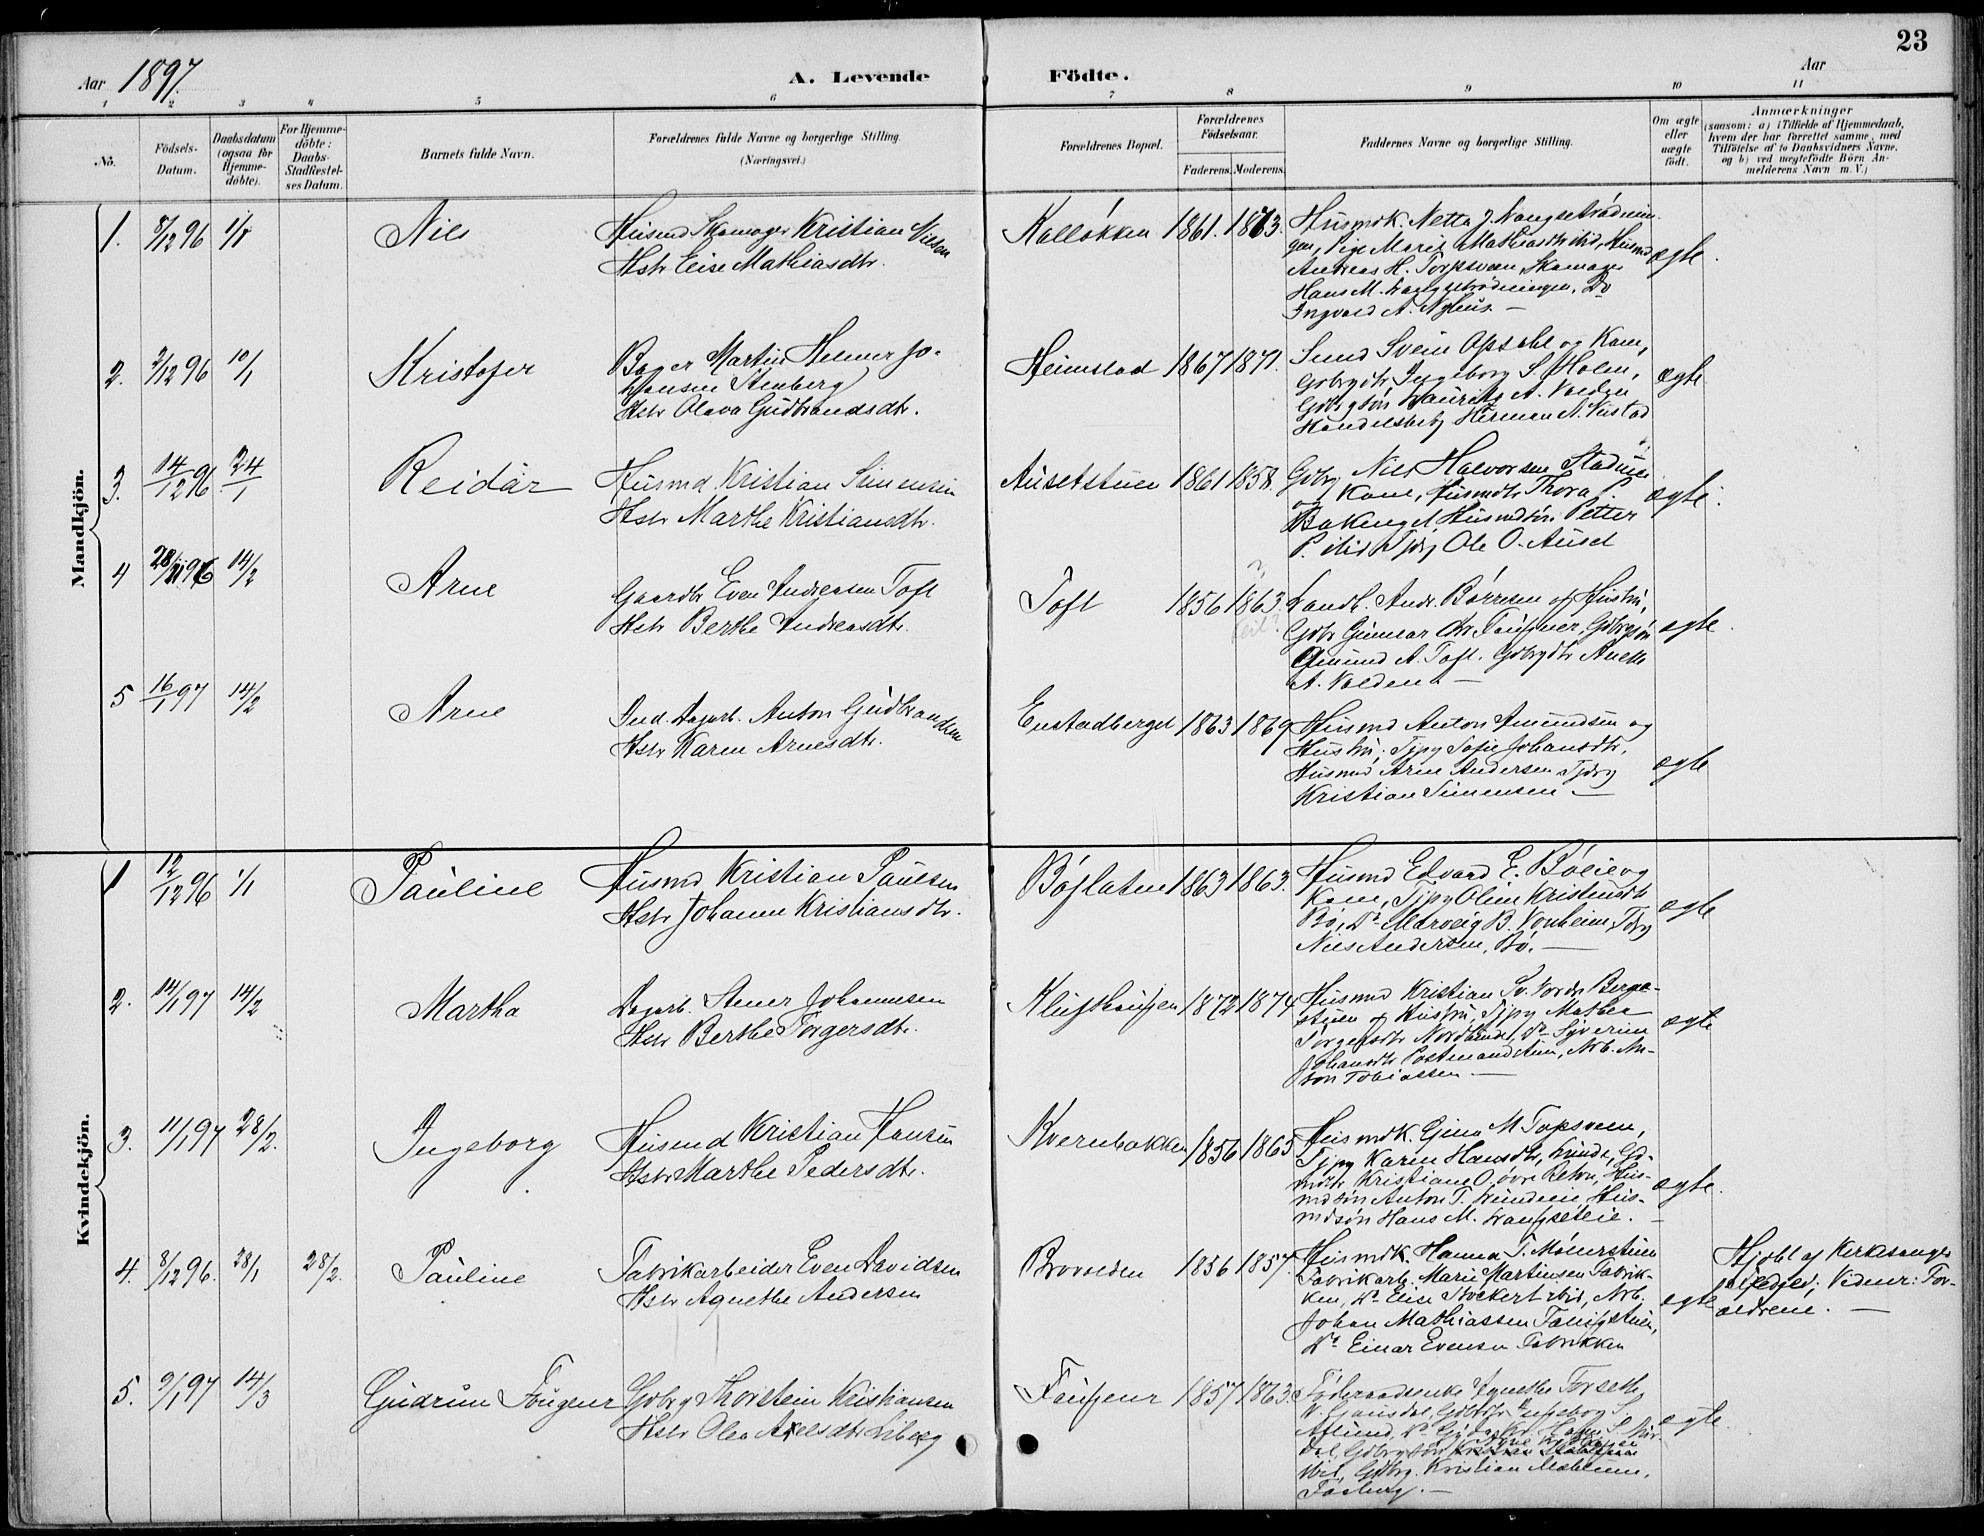 23
Aar 1897.
A. Levende Födte.
Aar
1 2 3 4 5 6 7 8 9 10 11
No.
Födsels-Datum.
Daabsdatum (ogsaa for Hjemme-döbte).
For Hjemme-döbte: Daabs-Stadfestel-ses Datum.
Barnets fulde Navn.
Forældrenes fulde Navne og borgerlige Stilling.
(Næringsvei.)
Forældrenes Bopæl.
Forældrenes Födselsaar.
Faderens. Moderens.
Faddernes Navne og borgerlige Stilling.
Om ægte eller uægte födt.
Anmærkninger
(saasom: a) i Tilfælde af Hjemmedaab,
hvem der har forrettet samme, med
Tilföielse af to Daabsvidners Navne,
og b) ved uegtefödte Börn An-
melderens Navn m. V.)
Mandkjön.
1. 8/12 96 1/1 Nils
Husmd Skomager Kristian Nilsen
Hstr Elise Mathiasdtr.
Kalløkken 1861. 1863.
Husmdk. Netta J.
Pige Marie Mathiasdtr ibid, Husmd
Andreas H. Torpsveen, Skomager
Hans M.
Ingvald A. Nyhus. —
ægte.
2. 2/12 96 10/1 Kristofer
Bager Martin Helmer Jo-
hansen Stenberg
Hstr Olava Gudbrandsdtr.
Heimstad 1867 1871.
Svein Opsahl og Kone,
Gbrgdtr Ingeborg S. Holen,
Gbrgsön Lauritz A. Volden
Handelsbetj Herman N.
ægte
3. 14/12 96. 24/1 Reidar
Husmd Kristian Simensen
Hstr Marthe Kristiansdtr.
Ausetstuen 1861 1858.
Gdbr Nils Halvorsen
og Kone, Husmdtr Thora P.
Bakengel, Husmdsön Petter
P. ibid, Tjdrg Ole O. Auset
ægte.
4 28/11 96 14/2 Arne
Gaardbr Even Andreasen Toft
Hstr Berthe Andreasdtr.
Toft 1856 1863.
?
feil?
Landh. Andr. Börresen og Hustru,
Gdbr Gunnar Chr. Faugner, Gdbrgsön
Amund A. Toft. Gdbrgdtr Anette
A. Volden. —
ægte.
5 16/1 97 14/2 Arne
Ind. Dagarb. Anton Gudbrandsen
Hstr Karen Arnesdtr.
Enstadberget 1863 1869
Husmd Anton Amundsen og
Hustru, Tjpg Sofie Johansdtr,
Husmd Arne Andersen, Tjdrg
Kristian Simensen —
ægte
Kvindekjön.
1 12/12 96 1/1 Pauline
Husmd Kristian Paulsen
Hstr Johanne Kristiansdtr.
Böjlaten 1863 1863.
Husmd Edvard E. Böeie og
Kone, Tjpg Oline Kristensdtr
Bö, Do Marveig B. Vonheim, Tjdrg
Nils Andersen, Bö. —
ægte
2. 14/1 97 14/2 Martha
Dagarb. Stener Johannesen
Hstr Berthe Torgersdtr.
Klufthaugen 1872 1874
Husmd Kristian Sv. Nordre Berge-
stuen og Hustru, Tjpg Mathea
Torgersdtr Nordlunde, Do Syverine
Johansdtr Postmandstuen, Arb. An-
ton Tobiassen. —
ægte
3. 11/1 97 28/2. Ingeborg
Husmd Kristian Hansen
Hstr Marthe Pedersdtr.
Kvernbakken 1856 1865
Husmdk. Gina M. Topsveen,
Tjpg Karen Hansdtr, Lunde, Gd-
mdtr Kristiane O. övre Reton, Hus-
mdsön Anton T. Lundeeie, Hus-
mdsön Hans M. Langseteie. —
ægte.
4. 8/12 96. 28/1 28/2. Pauline
Fabrikarbeider Even Davidsen
Hstr Agnethe Andersen
Brovolden 1856 1857.
Husmdk. Hanna T. Mönerstuen
Fabrikarb. Marie Martinsen Fabrik-
ken, Do Elise Stockert ibid, Arb.
Johan Mathiassen Faugstuen,
Do Einar Evensen Fabrikken
ægte
Hjdbt af Kirkesanger
Vidner: For-
ældrene. —
5. 9/1 97 14/3 Gudrun Fougner
Gdbrg Thorstein Kristiansen
Hstr Olea Axelsdtr Liberg
Faugner 1857 1863.
Föderaadsenke Agnethe Forseth,
Gdbrgdtr Ingeborg S.
ibid, Gdbrg. Kristian Mæhlum,
Fosberg. —
ægte.